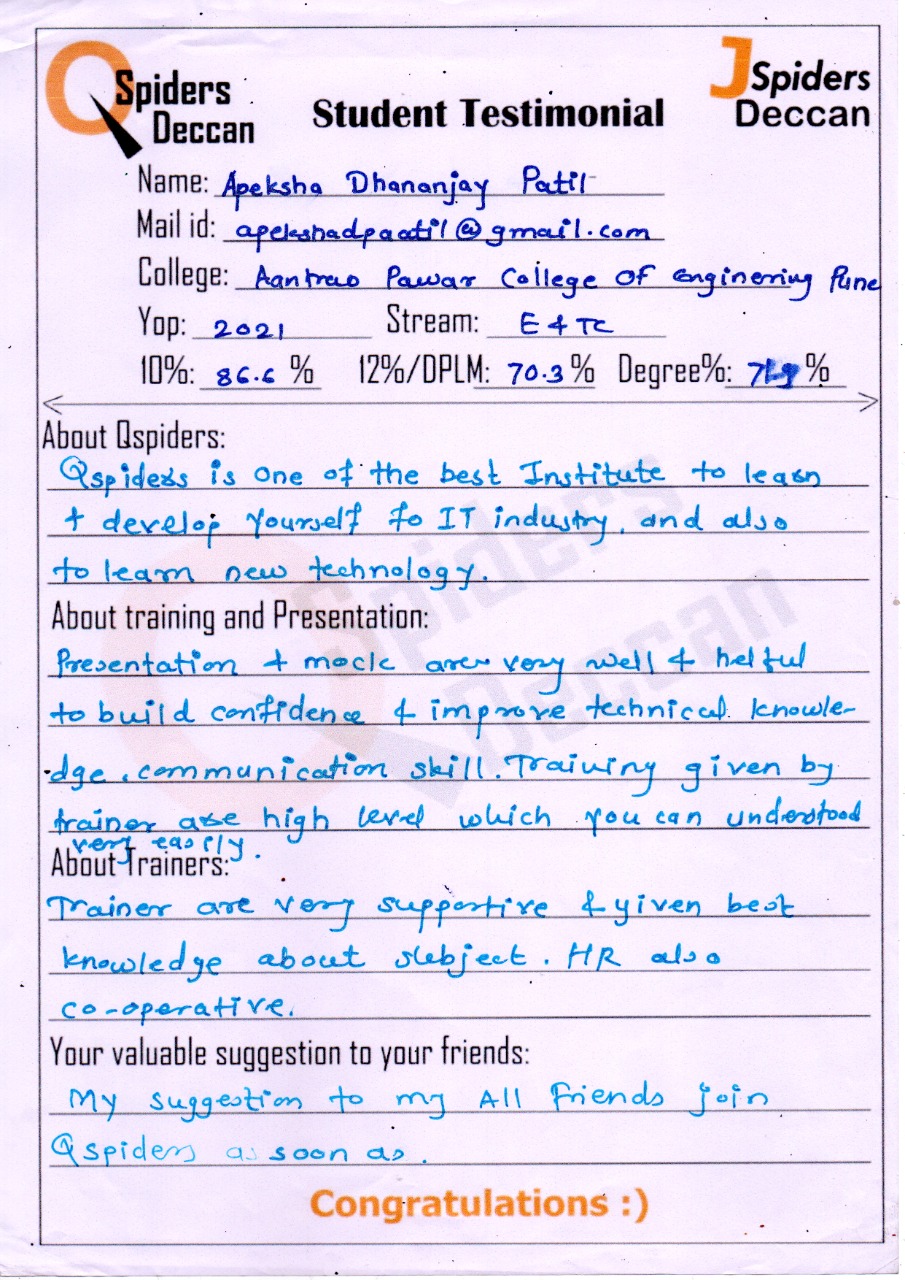 QSpiders Deccan
Student Testimonial
JSpiders Deccan
Name: Apeksha Dhananjay Patil
Mail id: apekshadpaatil@gmail.com
College: Aantrao Pawar College Of enginerring Pune
Yop: 2021 Stream: E & TC
10%: 86.6 % 12%/DPLM: 70.3 % Degree%: %
About Qspiders:
Qspiders is one of the best Institute to learn
+ develop yourself to IT industry, and also
to learn new technology.
About training and Presentation:
Presentation + mock are very well & helful
to build confidence & improve technical knowle-
dge, communication skill. Training given by
trainer are high level which you can understood
very easily.
About Trainers:
Trainer are very supportive & given best
knowledge about subject. HR also
co-operative.
Your valuable suggestion to your friends:
My suggestion to my All Friends join
Qspiders as soon as.
Congratulations :)